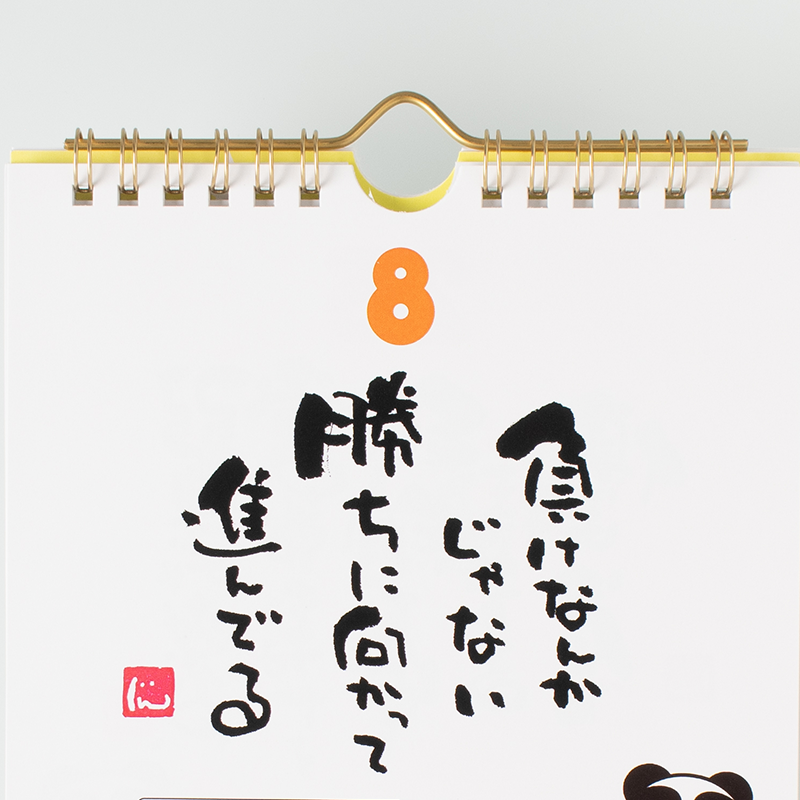 8
負けなんか
じゃない
勝ちに向かって
進んでる
じん